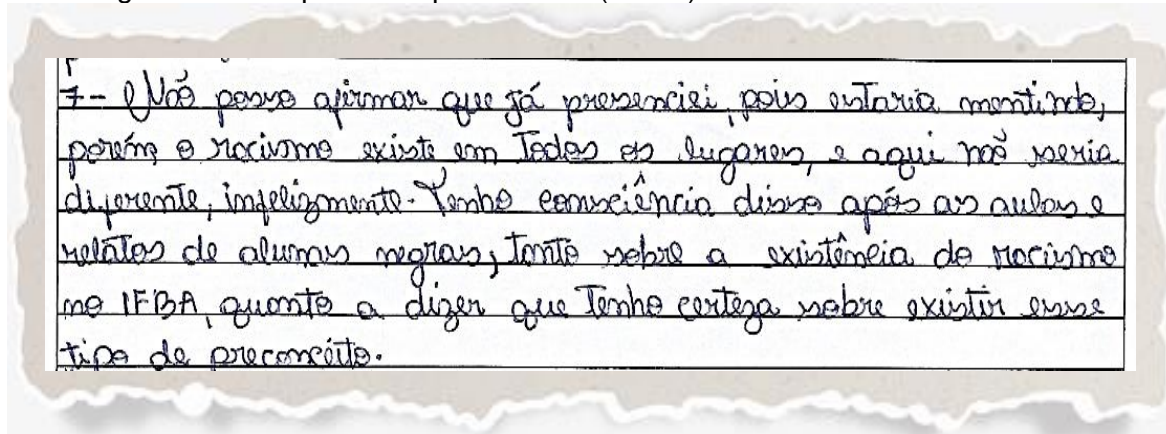 7- Não posso afirmar que já presenciei, pois estaria mentindo,
porém o racismo existe em Todos os lugares, e aqui não seria
diferente, infelizmente. Tenho consciência disso após as aulas e
relatos de alunas negras, tanto sobre a existência do racismo
no IFBA, quanto a dizer que Tenho certeza sobre existir esse
tipo de preconceito.